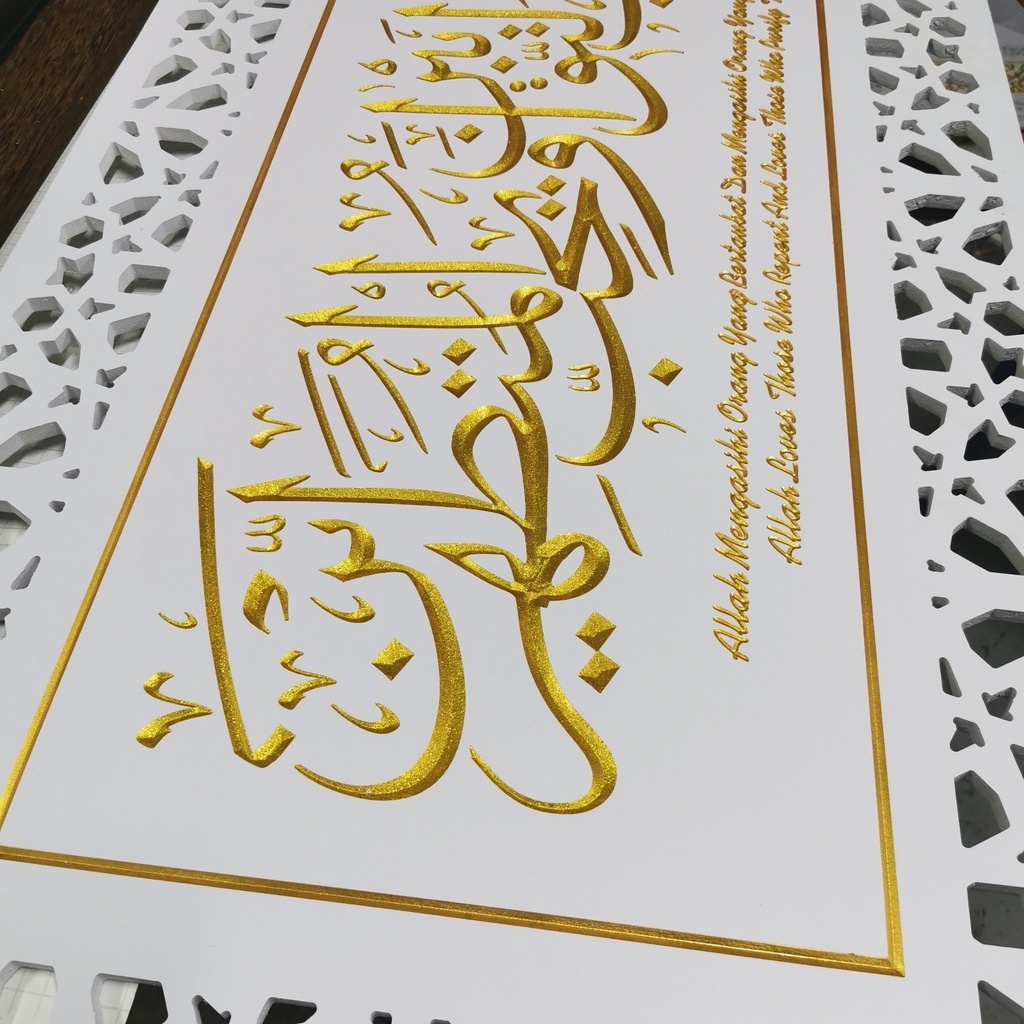 التَّوَّابِينَ وَيُحِبُّ الْمُتَطَهِّرِينَ
Allah Mengasihi Orang Yang Bertaubat Dan Mengasihi Orang Yang
Allah Loves Those Who Repent And Loves Those Who Purify